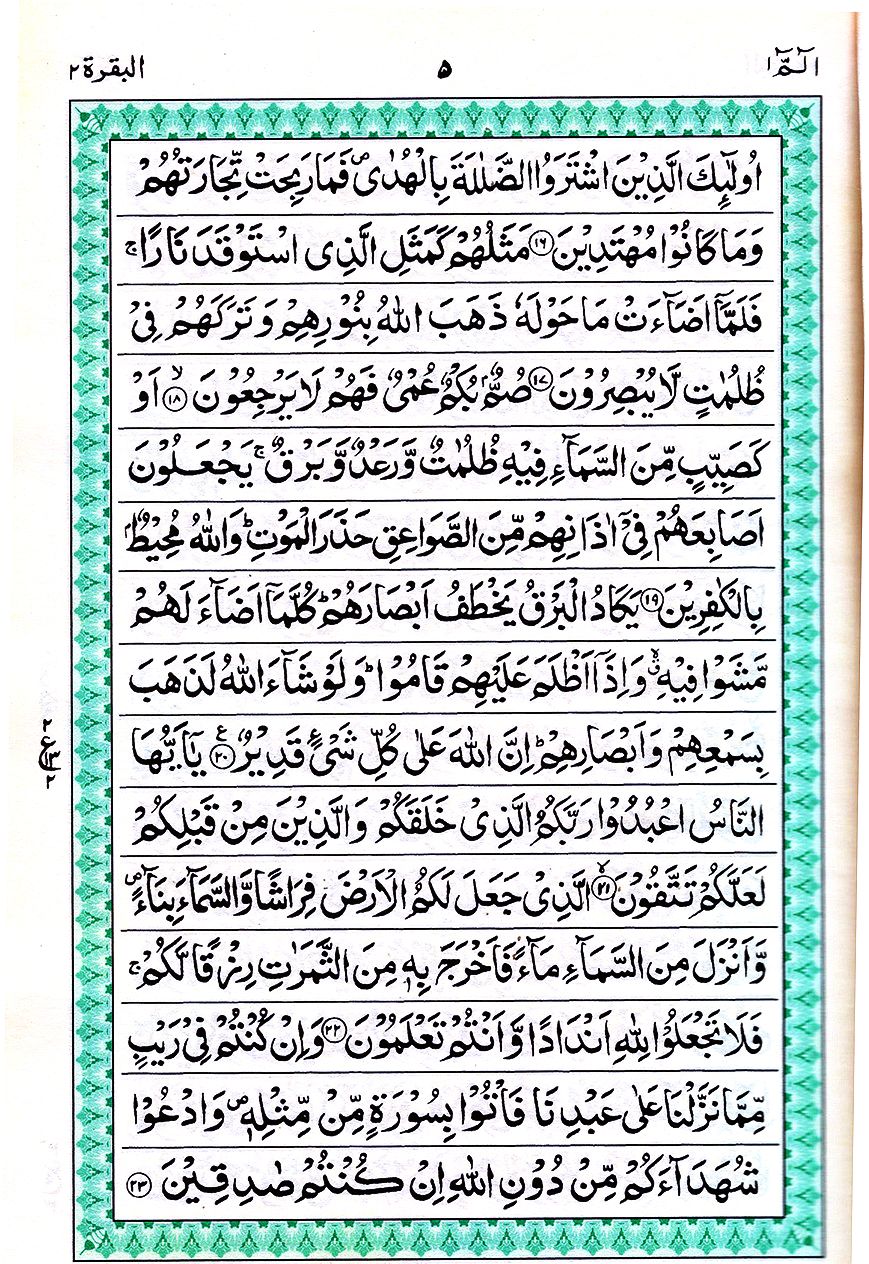 الٓمّٓ ۱ ۵ البقرة ۲
اُولٰٓئِكَ الَّذِيْنَ اشْتَرَوُا الضَّلٰلَةَ بِالْهُدٰى ۪ فَمَا رَبِحَتْ تِّجَارَتُهُمْ
وَمَا كَانُوْا مُهْتَدِيْنَ ﴿۱۶﴾ مَثَلُهُمْ كَمَثَلِ الَّذِى اسْتَوْقَدَ نَارًا ۚ
فَلَمَّآ اَضَآءَتْ مَا حَوْلَهٗ ذَهَبَ اللّٰهُ بِنُوْرِهِمْ وَتَرَكَهُمْ فِىْ
ظُلُمٰتٍ لَّا يُبْصِرُوْنَ ﴿۱۷﴾ صُمٌّۢ بُكْمٌ عُمْىٌ فَهُمْ لَا يَرْجِعُوْنَ ۙ﴿۱۸﴾ اَوْ
كَصَيِّبٍ مِّنَ السَّمَآءِ فِيْهِ ظُلُمٰتٌ وَّرَعْدٌ وَّبَرْقٌ ۚ يَجْعَلُوْنَ
اَصَابِعَهُمْ فِىْٓ اٰذَانِهِمْ مِّنَ الصَّوَاعِقِ حَذَرَ الْمَوْتِ ؕ وَاللّٰهُ مُحِيْطٌۢ
بِالْكٰفِرِيْنَ ﴿۱۹﴾ يَكَادُ الْبَرْقُ يَخْطَفُ اَبْصَارَهُمْ ؕ كُلَّمَآ اَضَآءَ لَهُمْ
مَّشَوْا فِيْهِ ۙۗ وَاِذَآ اَظْلَمَ عَلَيْهِمْ قَامُوْا ؕ وَلَوْ شَآءَ اللّٰهُ لَذَهَبَ
بِسَمْعِهِمْ وَاَبْصَارِهِمْ ؕ اِنَّ اللّٰهَ عَلٰى كُلِّ شَىْءٍ قَدِيْرٌ ﴿۲۰﴾ ع يٰٓاَيُّهَا
۲ ع ۱۳ ۲
النَّاسُ اعْبُدُوْا رَبَّكُمُ الَّذِىْ خَلَقَكُمْ وَالَّذِيْنَ مِنْ قَبْلِكُمْ
لَعَلَّكُمْ تَتَّقُوْنَ ۙ﴿۲۱﴾ الَّذِىْ جَعَلَ لَكُمُ الْاَرْضَ فِرَاشًا وَّالسَّمَآءَ بِنَآءً ۪
وَّاَنْزَلَ مِنَ السَّمَآءِ مَآءً فَاَخْرَجَ بِهٖ مِنَ الثَّمَرٰتِ رِزْقًا لَّكُمْ ۚ
فَلَا تَجْعَلُوْا لِلّٰهِ اَنْدَادًا وَّاَنْتُمْ تَعْلَمُوْنَ ﴿۲۲﴾ وَاِنْ كُنْتُمْ فِىْ رَيْبٍ
مِّمَّا نَزَّلْنَا عَلٰى عَبْدِنَا فَاْتُوْا بِسُوْرَةٍ مِّنْ مِّثْلِهٖ ۪ وَادْعُوْا
شُهَدَآءَكُمْ مِّنْ دُوْنِ اللّٰهِ اِنْ كُنْتُمْ صٰدِقِيْنَ ﴿۲۳﴾